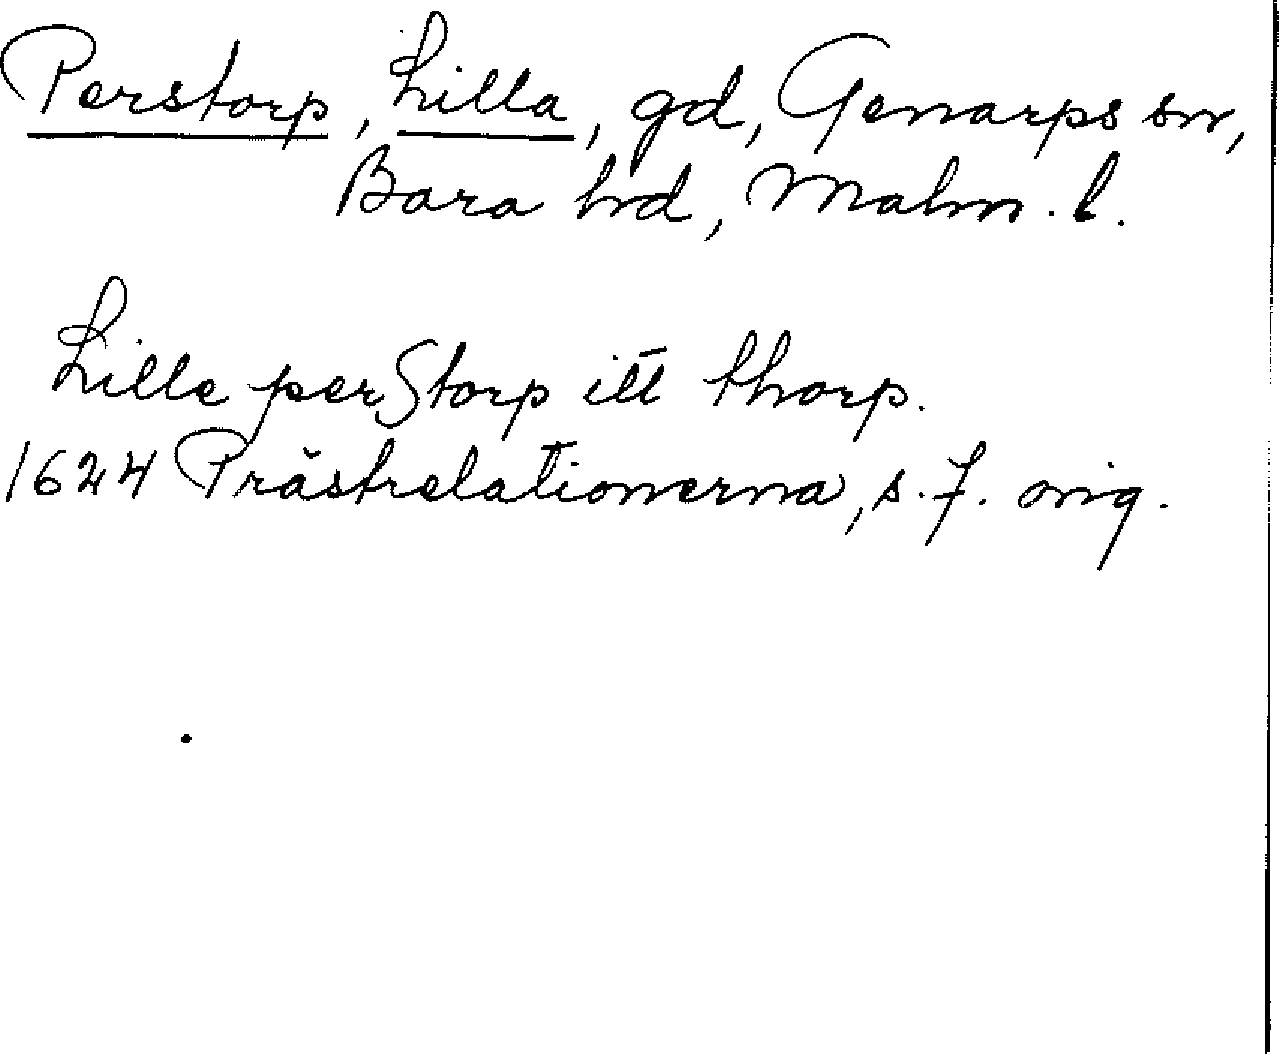 Perstorp, Lilla, gd, Genarps sn,
Bara hd, Malm. l.
Lille perStorp itt thorp.
1624 Prästrelationerna, s. 7. orig.